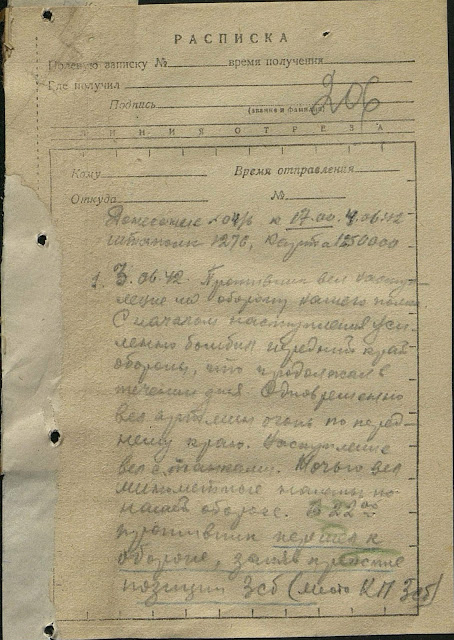 РАСПИСКА
Полевую записку № время получения
Где получил
Подпись
(звание и фамилия)
206
ЛИНИЯ ОТРЕЗА
Кому Время отправления
Откуда №
Донесение к 17.00. 4.06.42
1270, Карта 50000
1. 3.06.42. Противник вел насту-
пление на оборону нашего полка
С началом наступления уси-
ленно бомбил передний край
обороны, что продолжал в
течении дня. Одновременно
вел огонь по перед-
нему краю. Наступление
вел с танками. Ночью вел
минометные налеты по
нашей обороне. В 22 00
противник перешел к
обороне, заняв прежние
позиции 3сб (место КП 3сб)